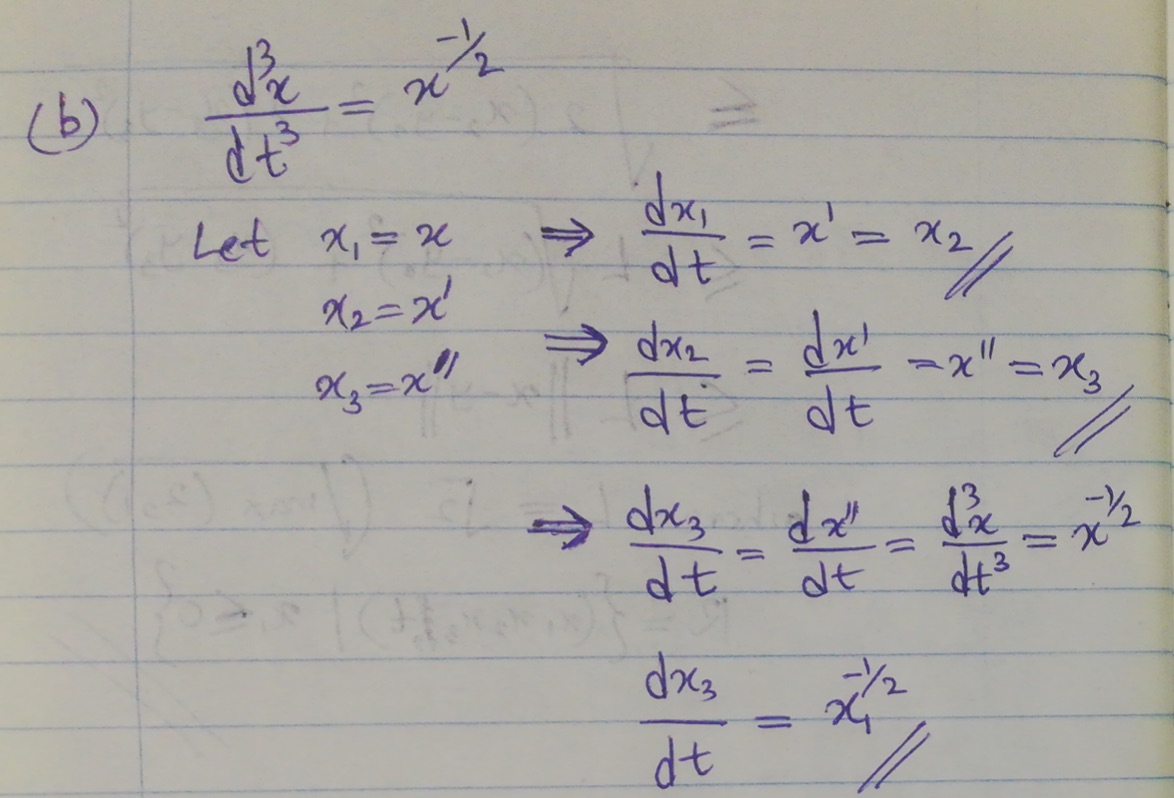 (b) d³x/dt³ = x^(-1/2)
Let x₁ = x ⇒ dx₁/dt = x' = x₂
x₂ = x'
⇒ dx₂/dt = dx'/dt = x'' = x₃
x₃ = x''
⇒ dx₃/dt = dx''/dt = d³x/dt³ = x^(-1/2)
dx₃/dt = x₁^(-1/2)